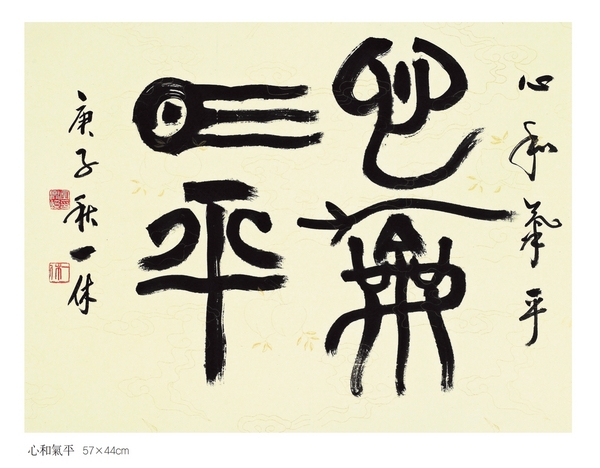 心和氣平
心龢
氣平
庚子秋一休
心和氣平 57×44cm